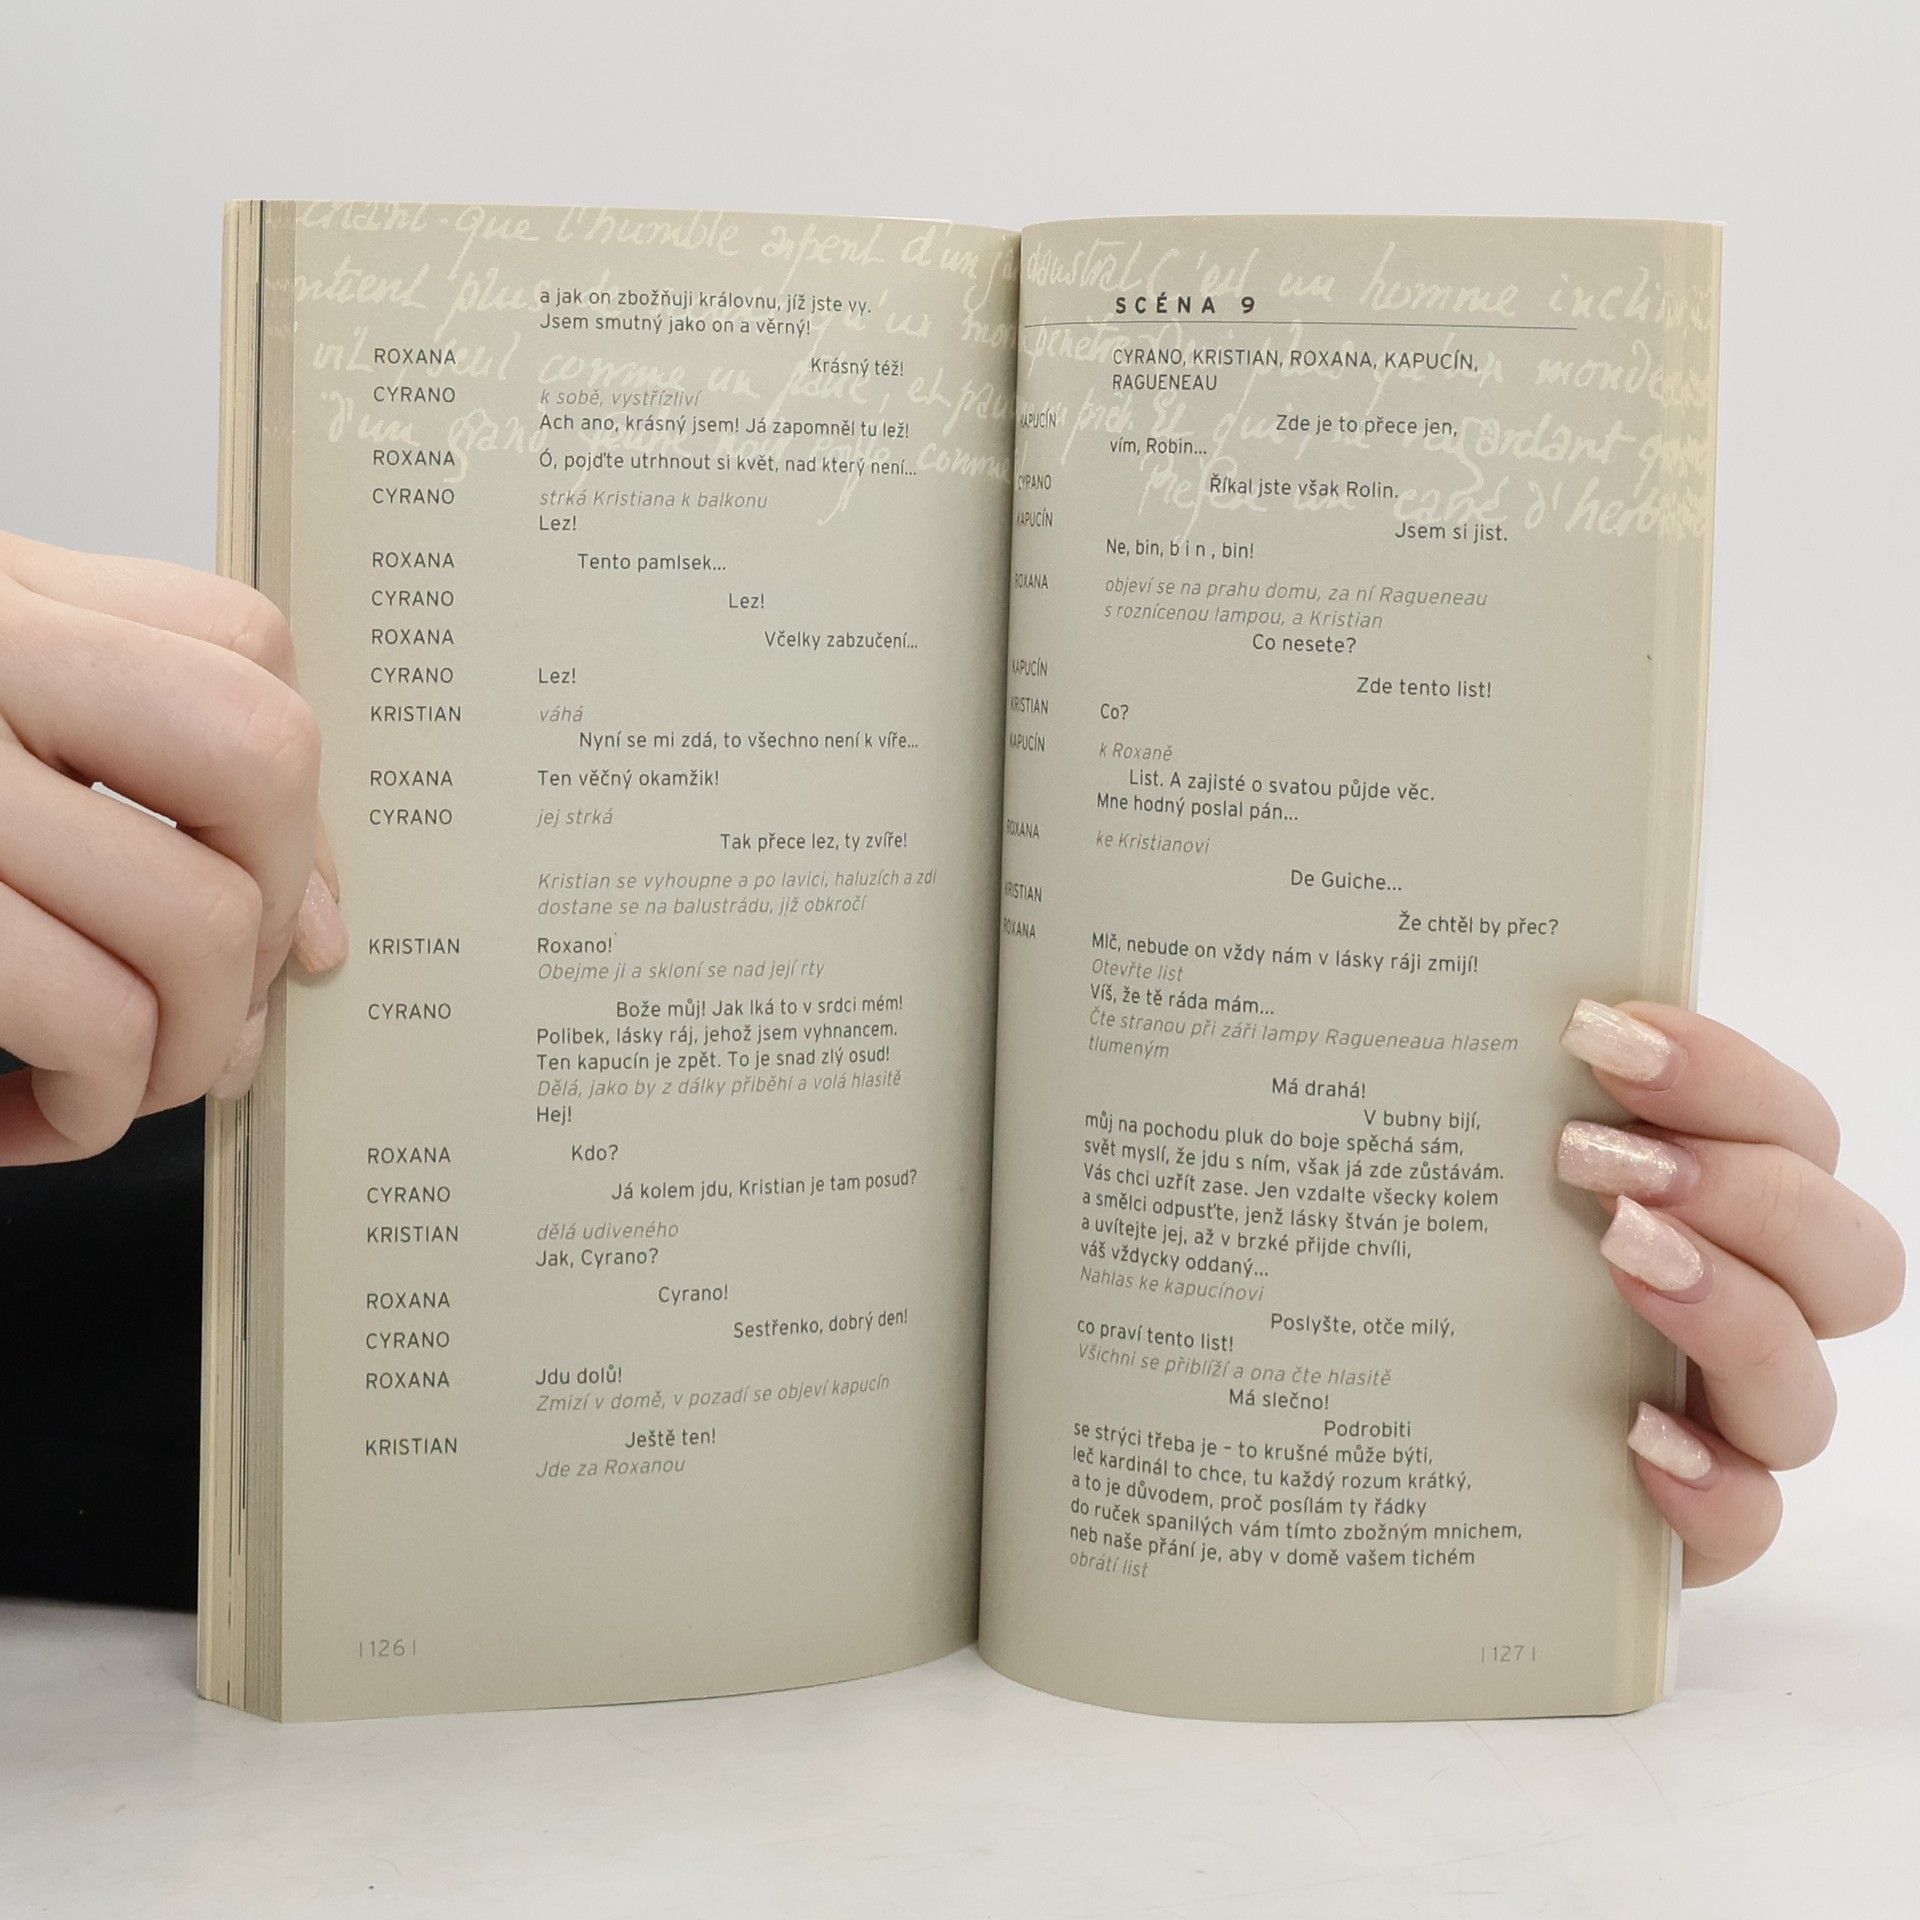 a jak on zbožňuji královnu, jíž jste vy.
Jsem smutný jako on a věrný!
ROXANA Krásný též!
CYRANO k sobě, vystřízliví
Ach ano, krásný jsem! Já zapomněl tu lež!
ROXANA Ó, pojďte utrhnout si květ, nad který není...
CYRANO strká Kristiana k balkonu
Lez!
ROXANA Tento pamlsek...
CYRANO Lez!
ROXANA Včelky zabzučení...
CYRANO Lez!
KRISTIAN váhá
Nyní se mi zdá, to všechno není k víře...
ROXANA Ten věčný okamžik!
CYRANO jej strká
Tak přece lez, ty zvíře!
Kristian se vyhoupne a po lavici, haluzích a zdi
dostane se na balustrádu, již obkročí
KRISTIAN Roxano!
Obejme ji a skloní se nad její rty
CYRANO Bože můj! Jak lká to v srdci mém!
Polibek, lásky ráj, jehož jsem vyhnancem.
Ten kapucín je zpět. To je snad zlý osud!
Dělá, jako by z dálky přiběhl a volá hlasitě
Hej!
ROXANA Kdo?
CYRANO Já kolem jdu, Kristian je tam posud?
KRISTIAN dělá udiveného
Jak, Cyrano?
ROXANA Cyrano!
CYRANO Sestřenko, dobrý den!
ROXANA Jdu dolů!
Zmizí v domě, v pozadí se objeví kapucín
KRISTIAN Ještě ten!
Jde za Roxanou
|126|
SCÉNA 9
CYRANO, KRISTIAN, ROXANA, KAPUCÍN,
RAGUENEAU
KAPUCÍN Zde je to přece jen,
vím, Robin...
CYRANO Říkal jste však Rolin.
KAPUCÍN Jsem si jist.
Ne, bin, b i n , bin!
ROXANA objeví se na prahu domu, za ní Ragueneau
s roznícenou lampou, a Kristian
Co nesete?
KAPUCÍN Zde tento list!
KRISTIAN Co?
KAPUCÍN k Roxaně
List. A zajisté o svatou půjde věc.
Mne hodný poslal pán...
ROXANA ke Kristianovi
De Guiche...
KRISTIAN Že chtěl by přec?
ROXANA Mlč, nebude on vždy nám v lásky ráji zmijí!
Otevřte list
Víš, že tě ráda mám...
Čte stranou při záři lampy Ragueneaua hlasem
tlumeným
Má drahá!
V bubny bijí,
můj na pochodu pluk do boje spěchá sám,
svět myslí, že jdu s ním, však já zde zůstávám.
Vás chci uzřít zase. Jen vzdalte všecky kolem
a smělci odpusťte, jenž lásky štván je bolem,
a uvítejte jej, až v brzké přijde chvíli,
váš vždycky oddaný...
Nahlas ke kapucínovi
Poslyšte, otče milý,
co praví tento list!
Všichni se přiblíží a ona čte hlasitě
Má slečno!
Podrobiti
se strýci třeba je – to krušné může býti,
leč kardinál to chce, tu každý rozum krátký,
a to je důvodem, proč posílám ty řádky
do ruček spanilých vám tímto zbožným mnichem,
neb naše přání je, aby v domě vašem tichém
obrátí list
|127|